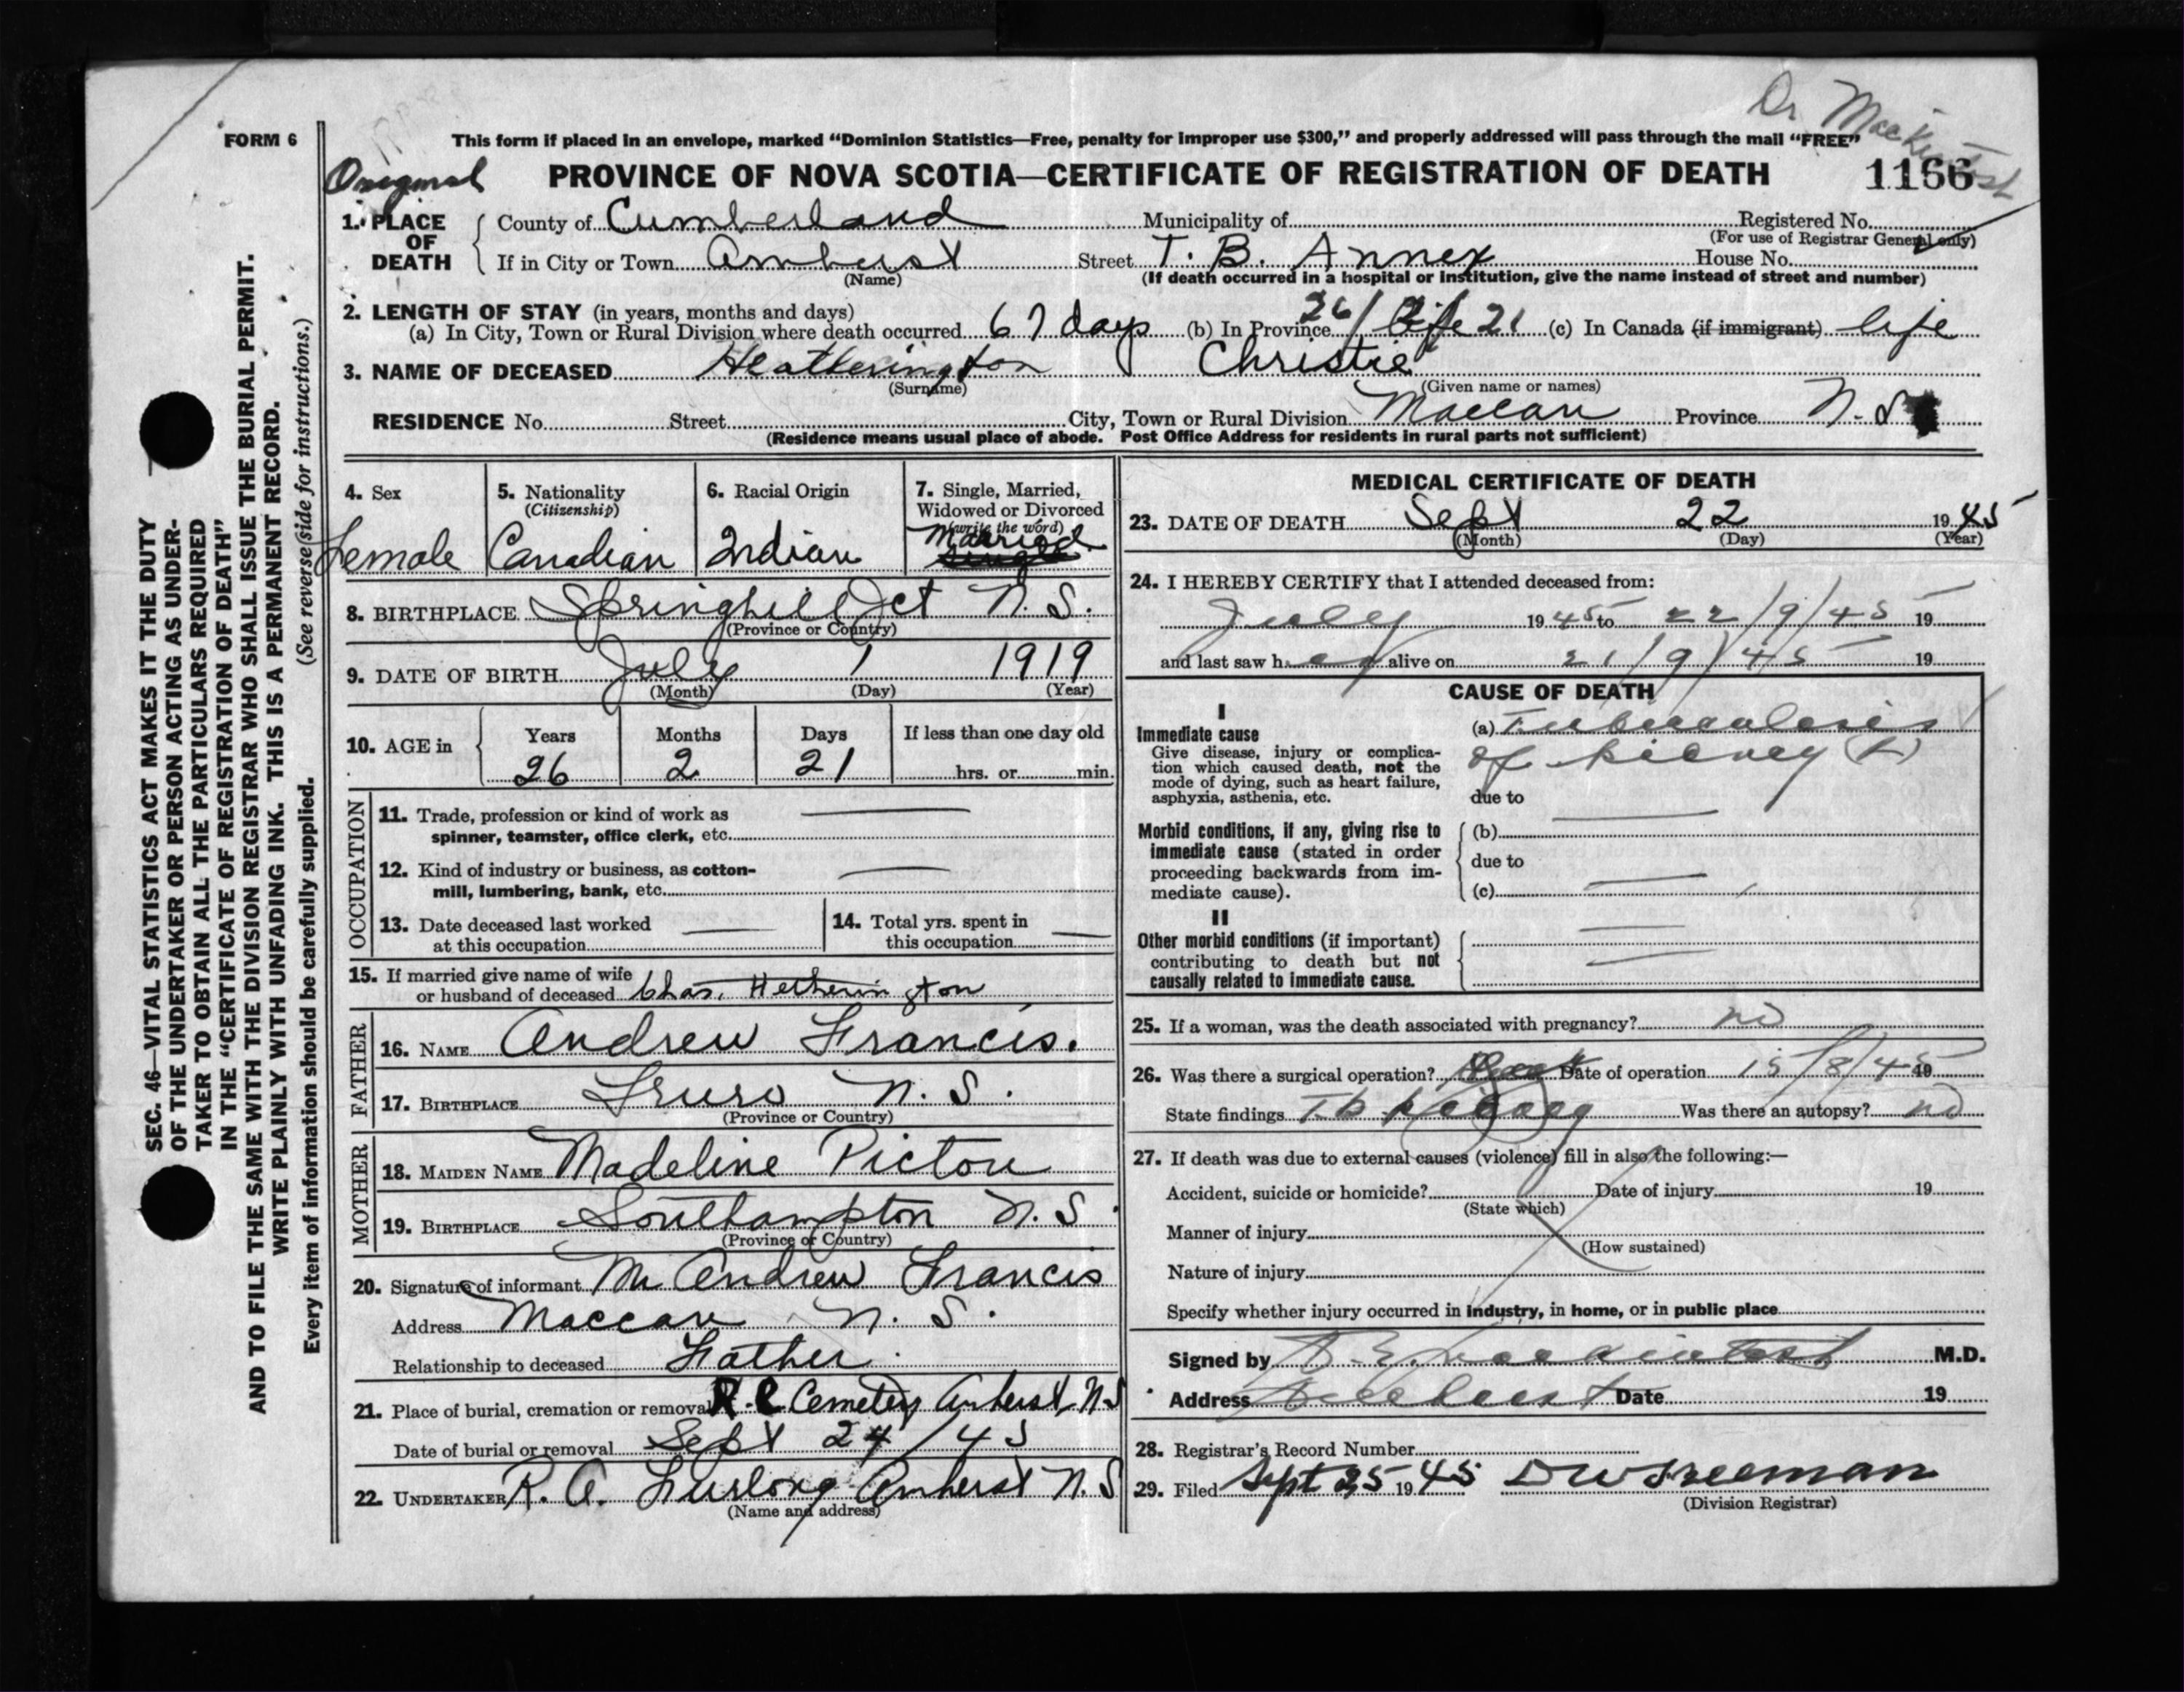 Dr MacKintosh
FORM 6
This form if placed in an envelope, marked “Dominion Statistics—Free, penalty for improper use $300,” and properly addressed will pass through the mail “FREE”
Original PROVINCE OF NOVA SCOTIA—CERTIFICATE OF REGISTRATION OF DEATH 1166
1. PLACE OF DEATH County of Cumberland Municipality of Registered No.
(For use of Registrar General only)
If in City or Town Amherst Street T. B. Annex House No.
(Name) (If death occurred in a hospital or institution, give the name instead of street and number)
2. LENGTH OF STAY (in years, months and days)
(a) In City, Town or Rural Division where death occurred 67 days (b) In Province 26/2/21 life (c) In Canada (if immigrant) life
3. NAME OF DECEASED Heatherington Christie
(Surname) (Given name or names)
RESIDENCE No. Street City, Town or Rural Division Maccan Province N.S
(Residence means usual place of abode. Post Office Address for residents in rural parts not sufficient)
4. Sex Female
5. Nationality (Citizenship) Canadian
6. Racial Origin Indian
7. Single, Married, Widowed or Divorced (write the word) Married Single
8. BIRTHPLACE Springhill Jct N.S.
(Province or Country)
9. DATE OF BIRTH July 1 1919
(Month) (Day) (Year)
10. AGE in Years Months Days If less than one day old
26 2 21 hrs. or min.
OCCUPATION
11. Trade, profession or kind of work as
spinner, teamster, office clerk, etc.
12. Kind of industry or business, as cotton-
mill, lumbering, bank, etc.
13. Date deceased last worked
at this occupation
14. Total yrs. spent in
this occupation
15. If married give name of wife
or husband of deceased Chas. Hetherington
FATHER
16. NAME Andrew Francis.
17. BIRTHPLACE Truro N.S.
(Province or Country)
MOTHER
18. MAIDEN NAME Madeline Pictou
19. BIRTHPLACE Southampton N.S.
(Province or Country)
20. Signature of informant Mr Andrew Francis
Address Maccan N.S.
Relationship to deceased Father
21. Place of burial, cremation or removal R.C Cemetery Amherst, N.S
Date of burial or removal Sept 24/45
22. UNDERTAKER R. A. Furlong Amherst N.S
(Name and address)
MEDICAL CERTIFICATE OF DEATH
23. DATE OF DEATH Sept 22 1945
(Month) (Day) (Year)
24. I HEREBY CERTIFY that I attended deceased from:
July 1945 to 22/9/45 19
and last saw her alive on 21/9/45 19
CAUSE OF DEATH
I
Immediate cause (a) Tuberculosis
Give disease, injury or complica- of kidney (L)
tion which caused death, not the
mode of dying, such as heart failure,
asphyxia, asthenia, etc. due to
Morbid conditions, if any, giving rise to (b)
immediate cause (stated in order due to
proceeding backwards from im-
mediate cause). (c)
II
Other morbid conditions (if important)
contributing to death but not
causally related to immediate cause.
25. If a woman, was the death associated with pregnancy? no
26. Was there a surgical operation? Date of operation 15/8/45 19
State findings T.b kidney Was there an autopsy? no
27. If death was due to external causes (violence) fill in also the following:—
Accident, suicide or homicide? Date of injury 19
(State which)
Manner of injury
(How sustained)
Nature of injury
Specify whether injury occurred in industry, in home, or in public place
Signed by MacKintosh M.D.
Address Amherst Date 19
28. Registrar's Record Number
29. Filed Sept 25 1945 D W Freeman
(Division Registrar)
SEC. 46—VITAL STATISTICS ACT MAKES IT THE DUTY
OF THE UNDERTAKER OR PERSON ACTING AS UNDER-
TAKER TO OBTAIN ALL THE PARTICULARS REQUIRED
IN THE “CERTIFICATE OF REGISTRATION OF DEATH”
AND TO FILE THE SAME WITH THE DIVISION REGISTRAR WHO SHALL ISSUE THE BURIAL PERMIT.
WRITE PLAINLY WITH UNFADING INK. THIS IS A PERMANENT RECORD.
Every item of information should be carefully supplied. (See reverse side for instructions.)